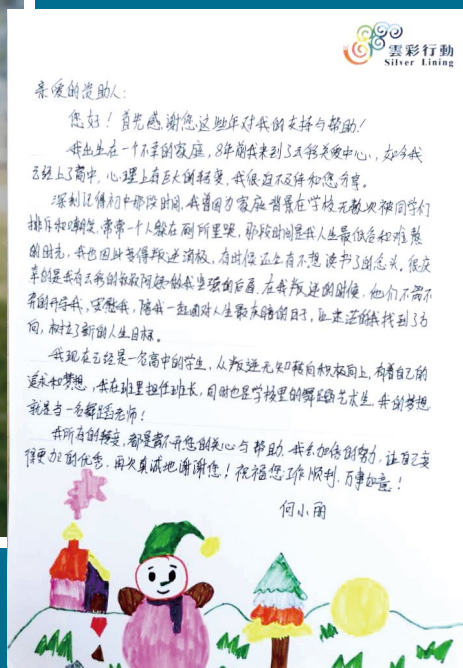 雲彩行動
Silver Lining
亲爱的资助人：
您好！首先感谢您这些年对我的支持与帮助！
我出生在一个不幸的家庭，8年前我来到了云彩关爱中心，如今我
已经上了高中，心理上有巨大的转变，我很迫不及待和您分享。
深刻记得初中那段时间，我曾因为家庭背景在学校无数次被同学们
排斥和嘲笑，常常一个人躲在厕所里哭，那段时间是我人生最低危和难熬
的时光，我也因此变得叛逆消极，有时候还生有不想读书了的念头。很庆
幸的是我有云彩的叔叔阿姨做我坚强的后盾，在我叛逆的时候，他们不谒不
弃的开导我，安慰我，陪我一起面对人生最灰暗的日子，让迷茫的我找到了方
向，树立了新的人生目标。
我现在已经是一名高中的学生，从叛逆无知转向积极向上，有着自己的
追求和梦想，我在班里担任班长，同时也是学校里的舞蹈艺术生，我的梦想
就是当一名舞蹈老师！
我所有的转变，都是离不开您的关心与帮助，我会加倍的努力，让自己变
得更加的优秀，再次真诚地谢谢您！祝福您工作顺利，万事如意！
何小雨